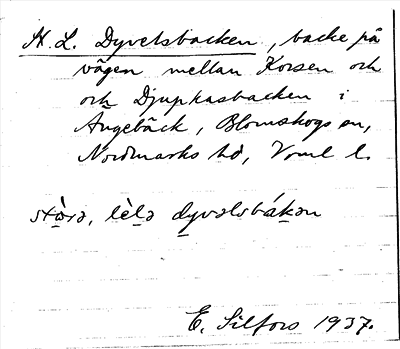 St. L. Dyvelsbacken, backe på
vägen mellan Korsen och
och Djupkasbacken i
Ängebäck, Blomskogs sn,
Nordmarks hd, Vrml l.
stòrə, lèlə dyvəlsbákən
E. Silfors 1937.